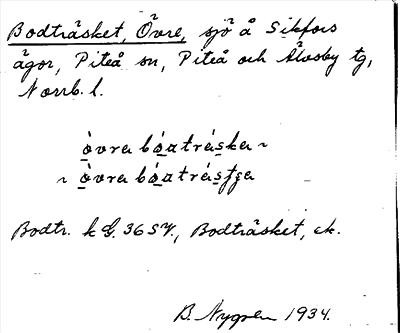 Bodträsket, Övre, sjö å Sikfors
ägor, Piteå sn, Piteå och Älvsby tg,
Norrb. l.
òvrɐ bo̱atrǻska ~
~ òvrɐ bo̱atrǻsʃgɐ
Bodtr. k G. 36 SV., Bodträsket, ek.
B. Nygren 1934.